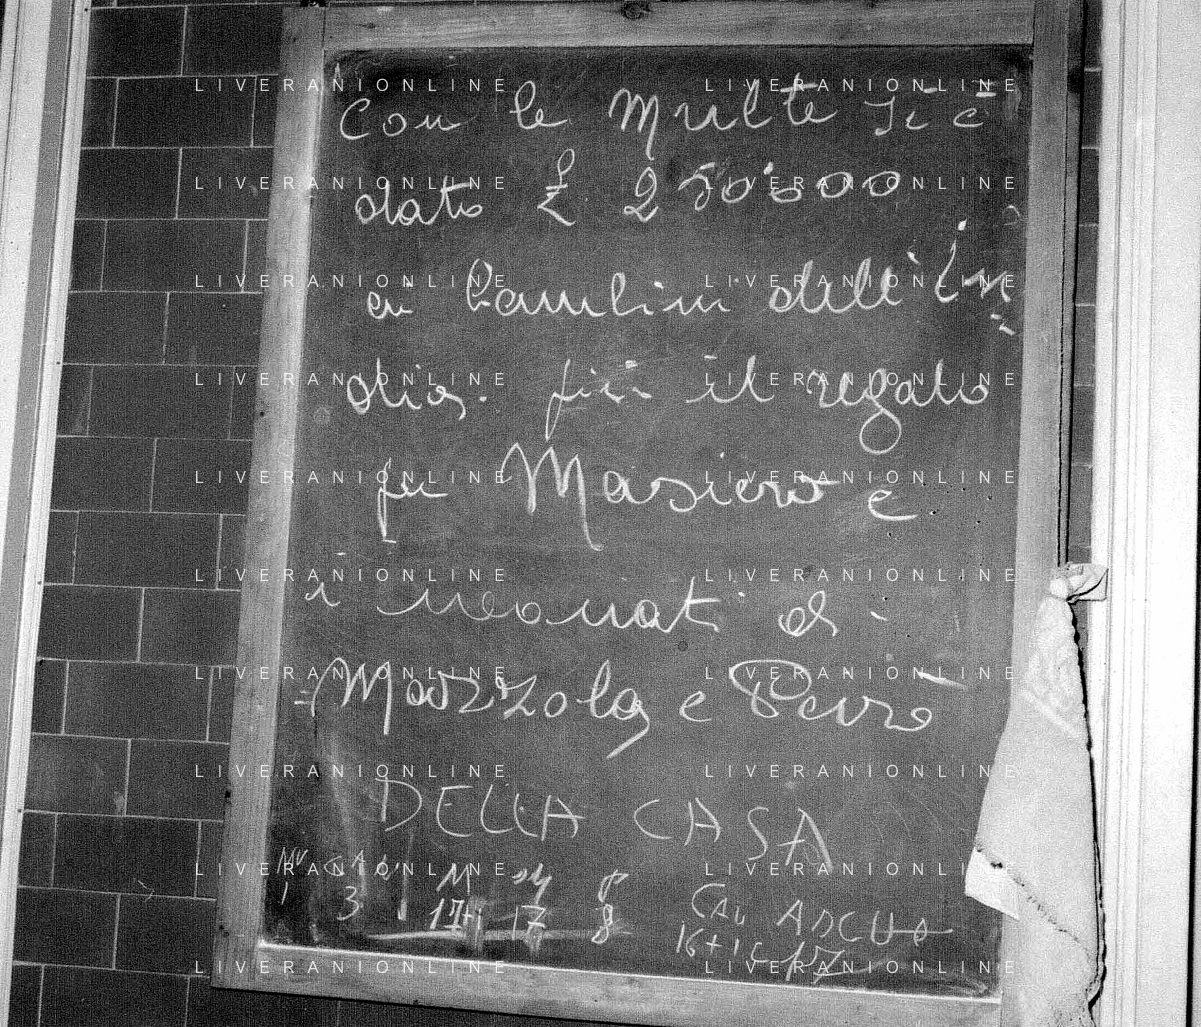 Con le Multe si è
dato £ 250'000
ai bambini dell'In=
dia. più il regalo
per Masiero e
i neonati di
=Mazzola e Peirò
DELLA CASA
M
1 3 17+1 17 8
16+16
LIVERANIONLINE LIVERANIONLINE
LIVERANIONLINE LIVERANIONLINE
LIVERANIONLINE LIVERANIONLINE
LIVERANIONLINE LIVERANIONLINE
LIVERANIONLINE LIVERANIONLINE
LIVERANIONLINE LIVERANIONLINE
LIVERANIONLINE LIVERANIONLINE
LIVERANIONLINE LIVERANIONLINE
LIVERANIONLINE LIVERANIONLINE
LIVERANIONLINE LIVERANIONLINE